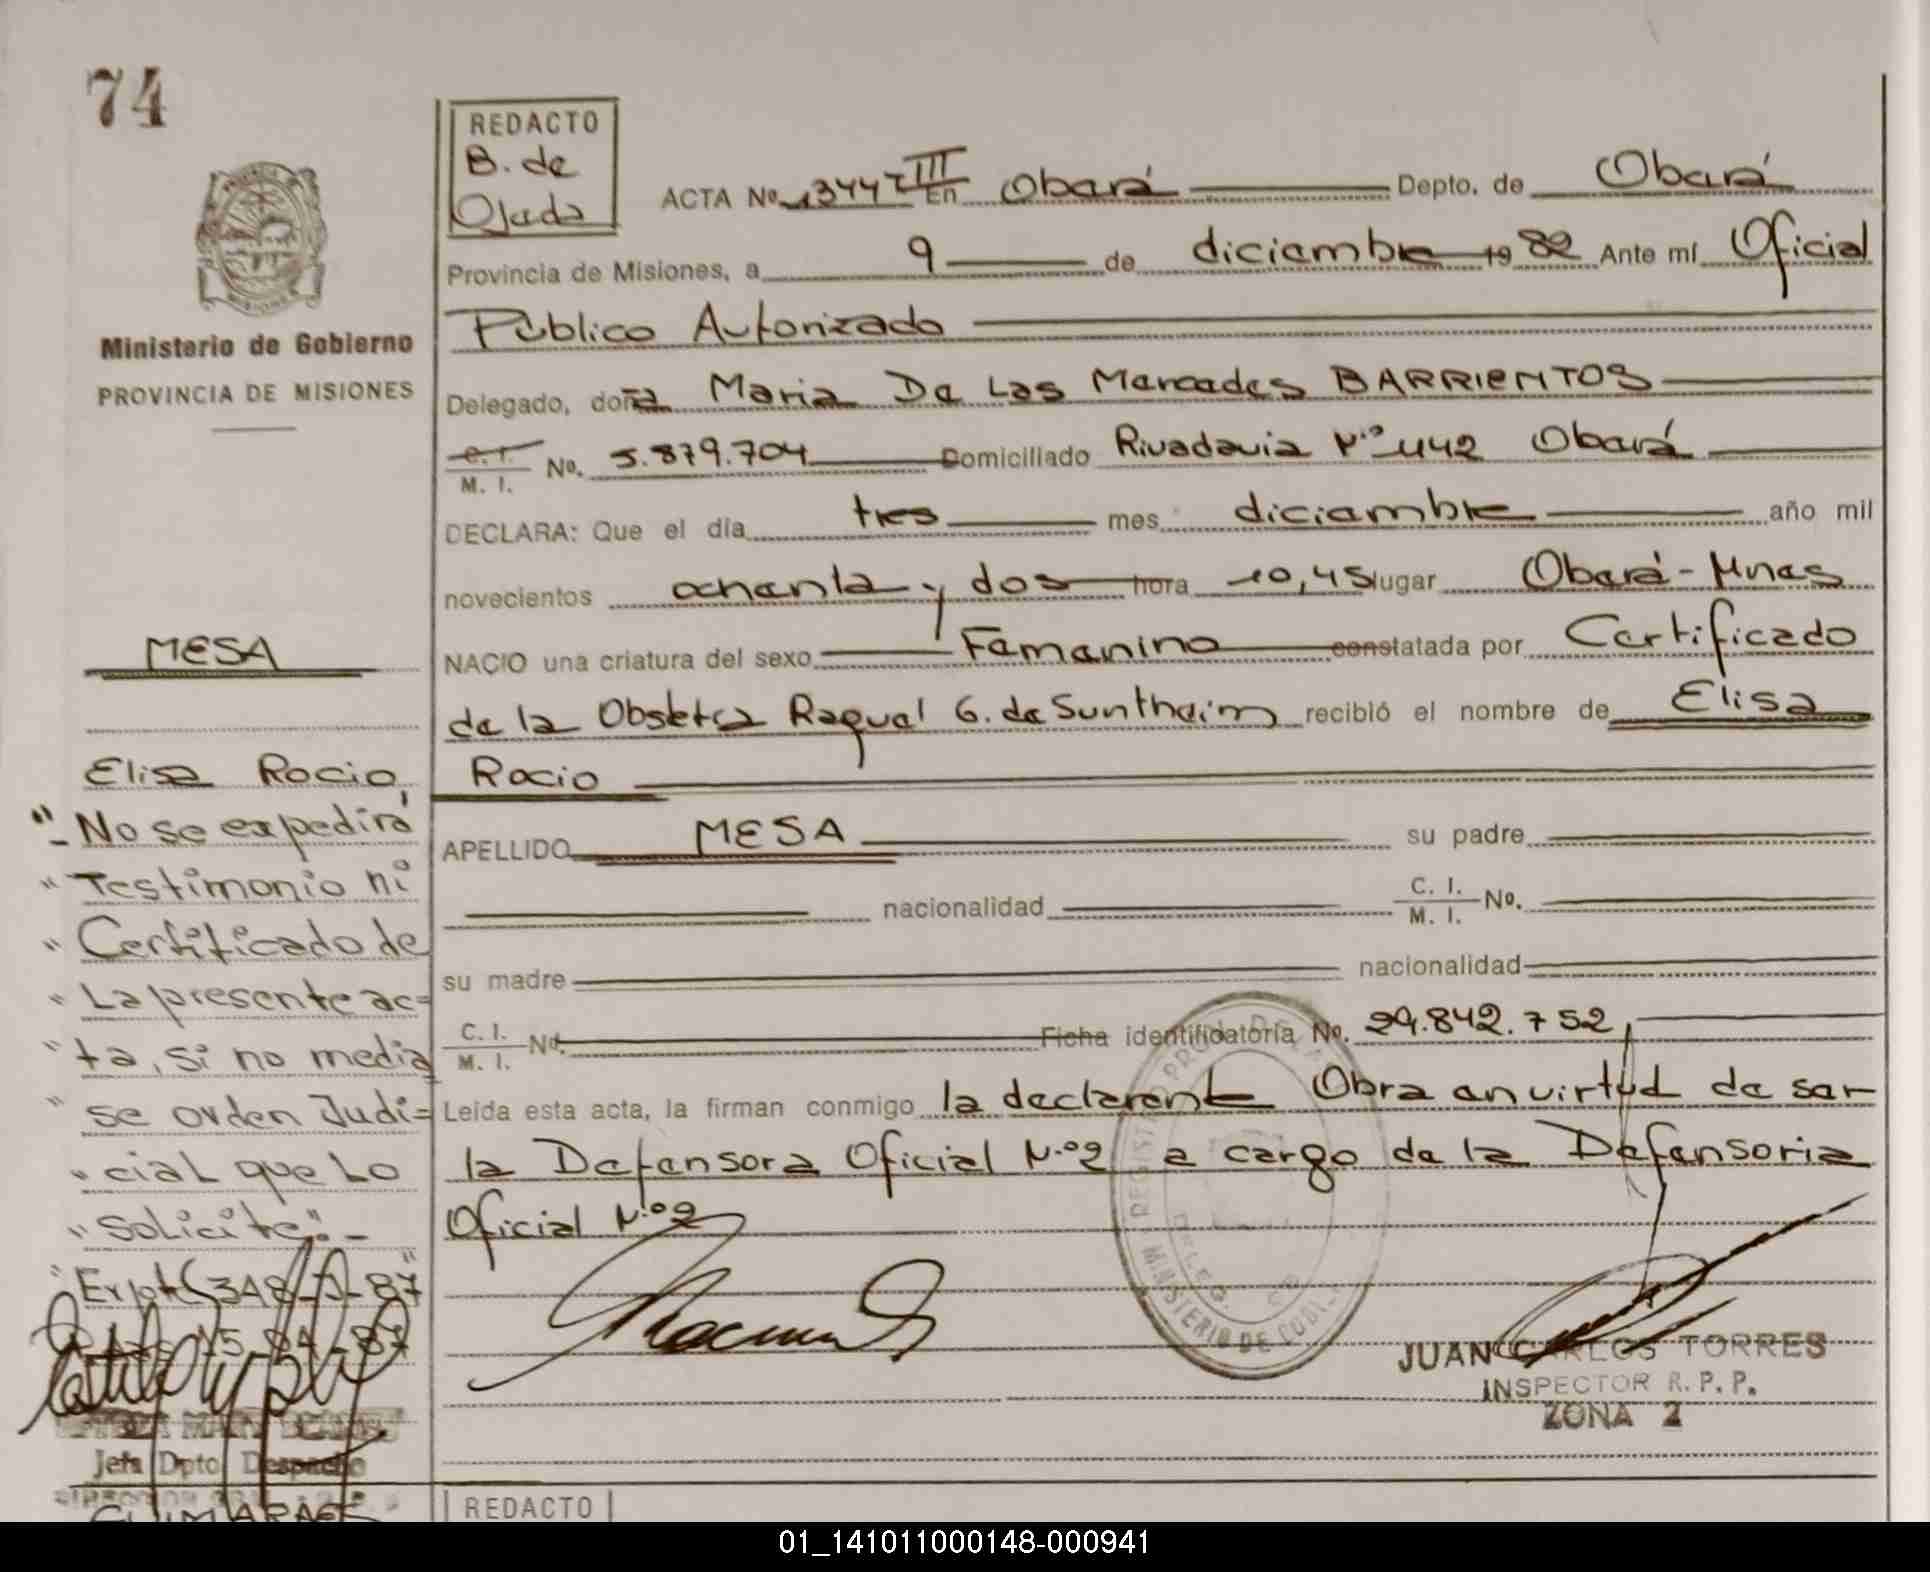 74
REDACTO
B. de
Ojeda
ACTA No. 1344 T III En Oberá Depto. de Oberá
Provincia de Misiones, a 9 de diciembre 1982 Ante mí Oficial
Público Autorizado
Delegado, doña Maria De Las Mercedes BARRIENTOS
C. I.
M. I. No. 5.879.704 Domiciliado Rivadavia Nº 442 Oberá
DECLARA: Que el día tres mes diciembre año mil
novecientos ochenta y dos hora 10,45 lugar Oberá - Mnes
NACIO una criatura del sexo Femenino constatada por Certificado
de la Obstetra Raquel G. de Suntheim recibió el nombre de Elisa
Rocio
APELLIDO MESA su padre
nacionalidad C. I.
M. I. No.
su madre nacionalidad
C. I.
M. I. No. Ficha identificatoria No. 29.842.752,
Leída esta acta, la firman conmigo la declarente Obra en virtud de ser
la Defensora Oficial N.º 2 a cargo de la Defensoria
Oficial N.º 2
JUAN CARLOS TORRES
INSPECTOR R. P. P.
ZONA 2
Ministerio de Gobierno
PROVINCIA DE MISIONES
MESA
Elisa Rocio
"- No se expedirá
" Testimonio ni
" Certificado de
" La presente ac=
" ta, si no media
" se orden Judi=
" cial que Lo
" solicite".-
"Expte 348-J-87"
15-04-87
Jefa Dpto Despacho
REDACTO
01_141011000148-000941